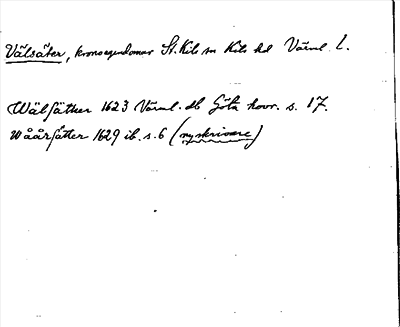 Välsäter, kronoegendomar St. Kils sn Kils hd Värml. l.
Wälsätter 1623 Värml. db Göta hovr. s. 17.
Wåårsätter 1629 ib. s. 6 (ny skrivare)